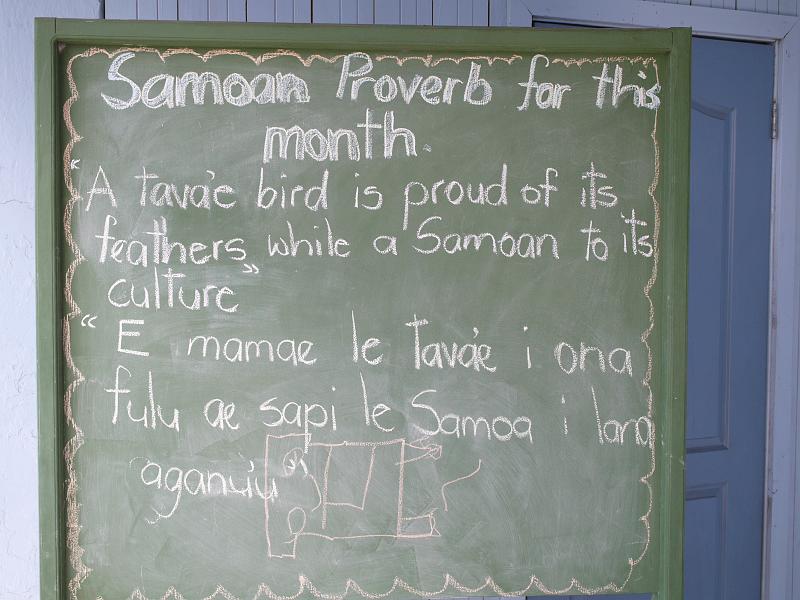 Samoan Proverb for this
month.
“A tava'e bird is proud of its
feathers while a Samoan to its
culture”
“E mamae le tava'e i ona
fulu ae sapi le Samoa i lana
aganu'u”